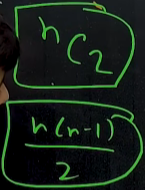 ⁿC₂
n(n-1)
2